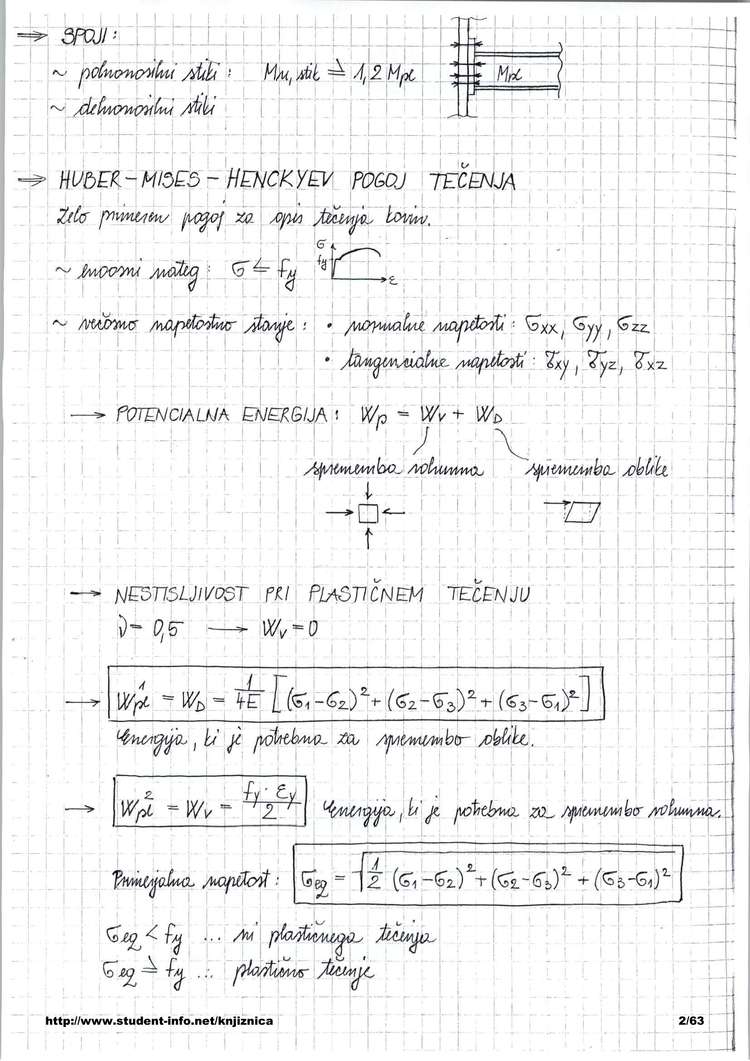 ⇒ SPOJI:
~ polnonosilni stiki: Mu,stik ≥ 1,2 Mpl
Mpl
~ delnonosilni stiki
⇒ HUBER-MISES-HENCKYEV POGOJ TEČENJA
Zelo primeren pogoj za opis tečenja kovin.
~ enoosni nateg: σ ≤ fy
σ
fy
ε
~ večosno napetostno stanje: • normalne napetosti: σxx, σyy, σzz
• tangencialne napetosti: τxy, τyz, τxz
→ POTENCIALNA ENERGIJA: Wp = Wv + WD
sprememba volumna sprememba oblike
→ NESTISLJIVOST PRI PLASTIČNEM TEČENJU
ν = 0,5 → Wv = 0
→ Wpl¹ = WD = 1/4E [(σ1-σ2)² + (σ2-σ3)² + (σ3-σ1)²]
Energija, ki je potrebna za spremembo oblike.
→ Wpl² = Wv = fy·εy/2 Energija, ki je potrebna za spremembo volumna.
Primerjalna napetost: σeq = √1/2 (σ1-σ2)² + (σ2-σ3)² + (σ3-σ1)²
σeq < fy ... ni plastičnega tečenja
σeq ≥ fy ... plastično tečenje
http://www.student-info.net/knjiznica 2/63